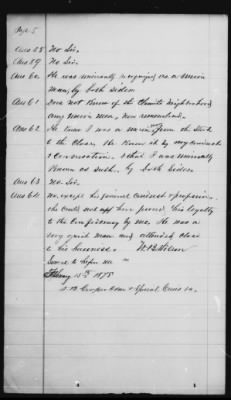 Page 5
Ans 58 No Sir.
Ans 59 No Sir.
Ans 60 He was universally recognized as a Union
man, by both sides
Ans 61 Does not know of the Climate Neighborhood
any union man, now remembered.
Ans 62 He knew I was a union man from the Start
to the Close. He knew it by my conduct
& Conversation. & that I was universally
known as such by both sides
Ans 63 No Sir.
Ans 64 No, except his general conduct & expression.
he could not have proved his loyalty
to the Confederacy by me. He was a
very quiet man and attended close
to his business.
Sworn to before me
15th 1875
& Special